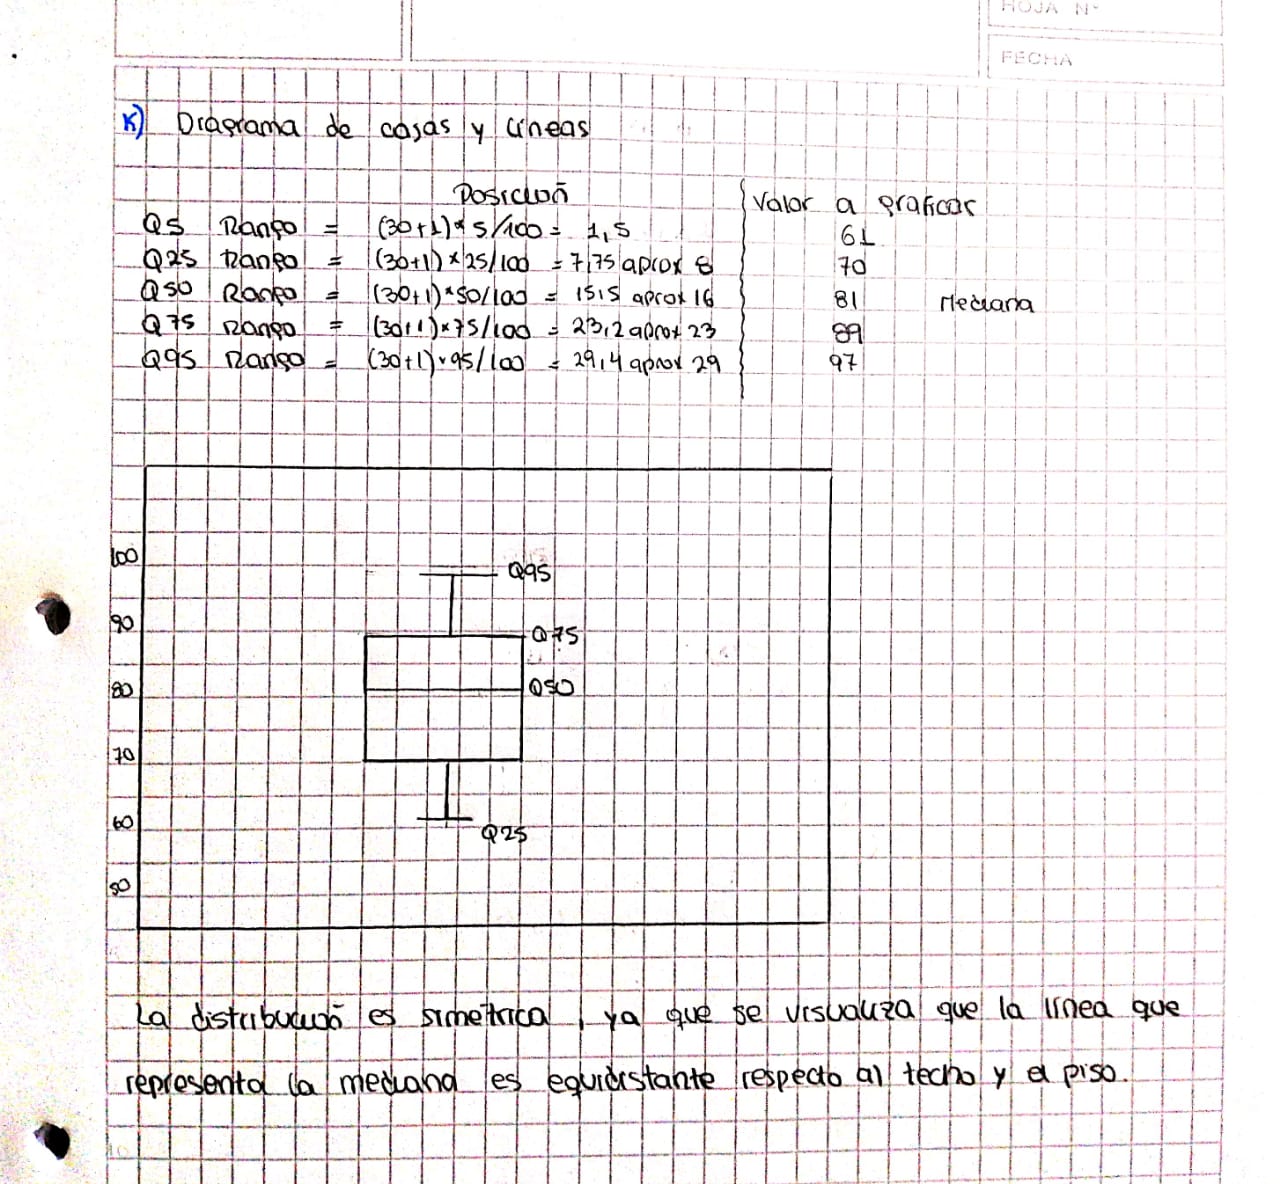 HOJA N°
FECHA
K) Diagrama de cajas y líneas
Posición
Valor a graficar
Q5 Rango = (30+1)*5/100 = 1,5
61
Q25 Rango = (30+1)*25/100 = 7,75 aprox 8
70
Q50 Rango = (30+1)*50/100 = 15,5 aprox 16
81 Mediana
Q75 Rango = (30+1)*75/100 = 23,2 aprox 23
89
Q95 Rango = (30+1)*95/100 = 29,4 aprox 29
97
100
Q95
90
Q75
80
Q50
70
60
Q25
50
La distribución es simétrica, ya que se visualiza que la línea que
representa la mediana es equidistante respecto al techo y el piso.